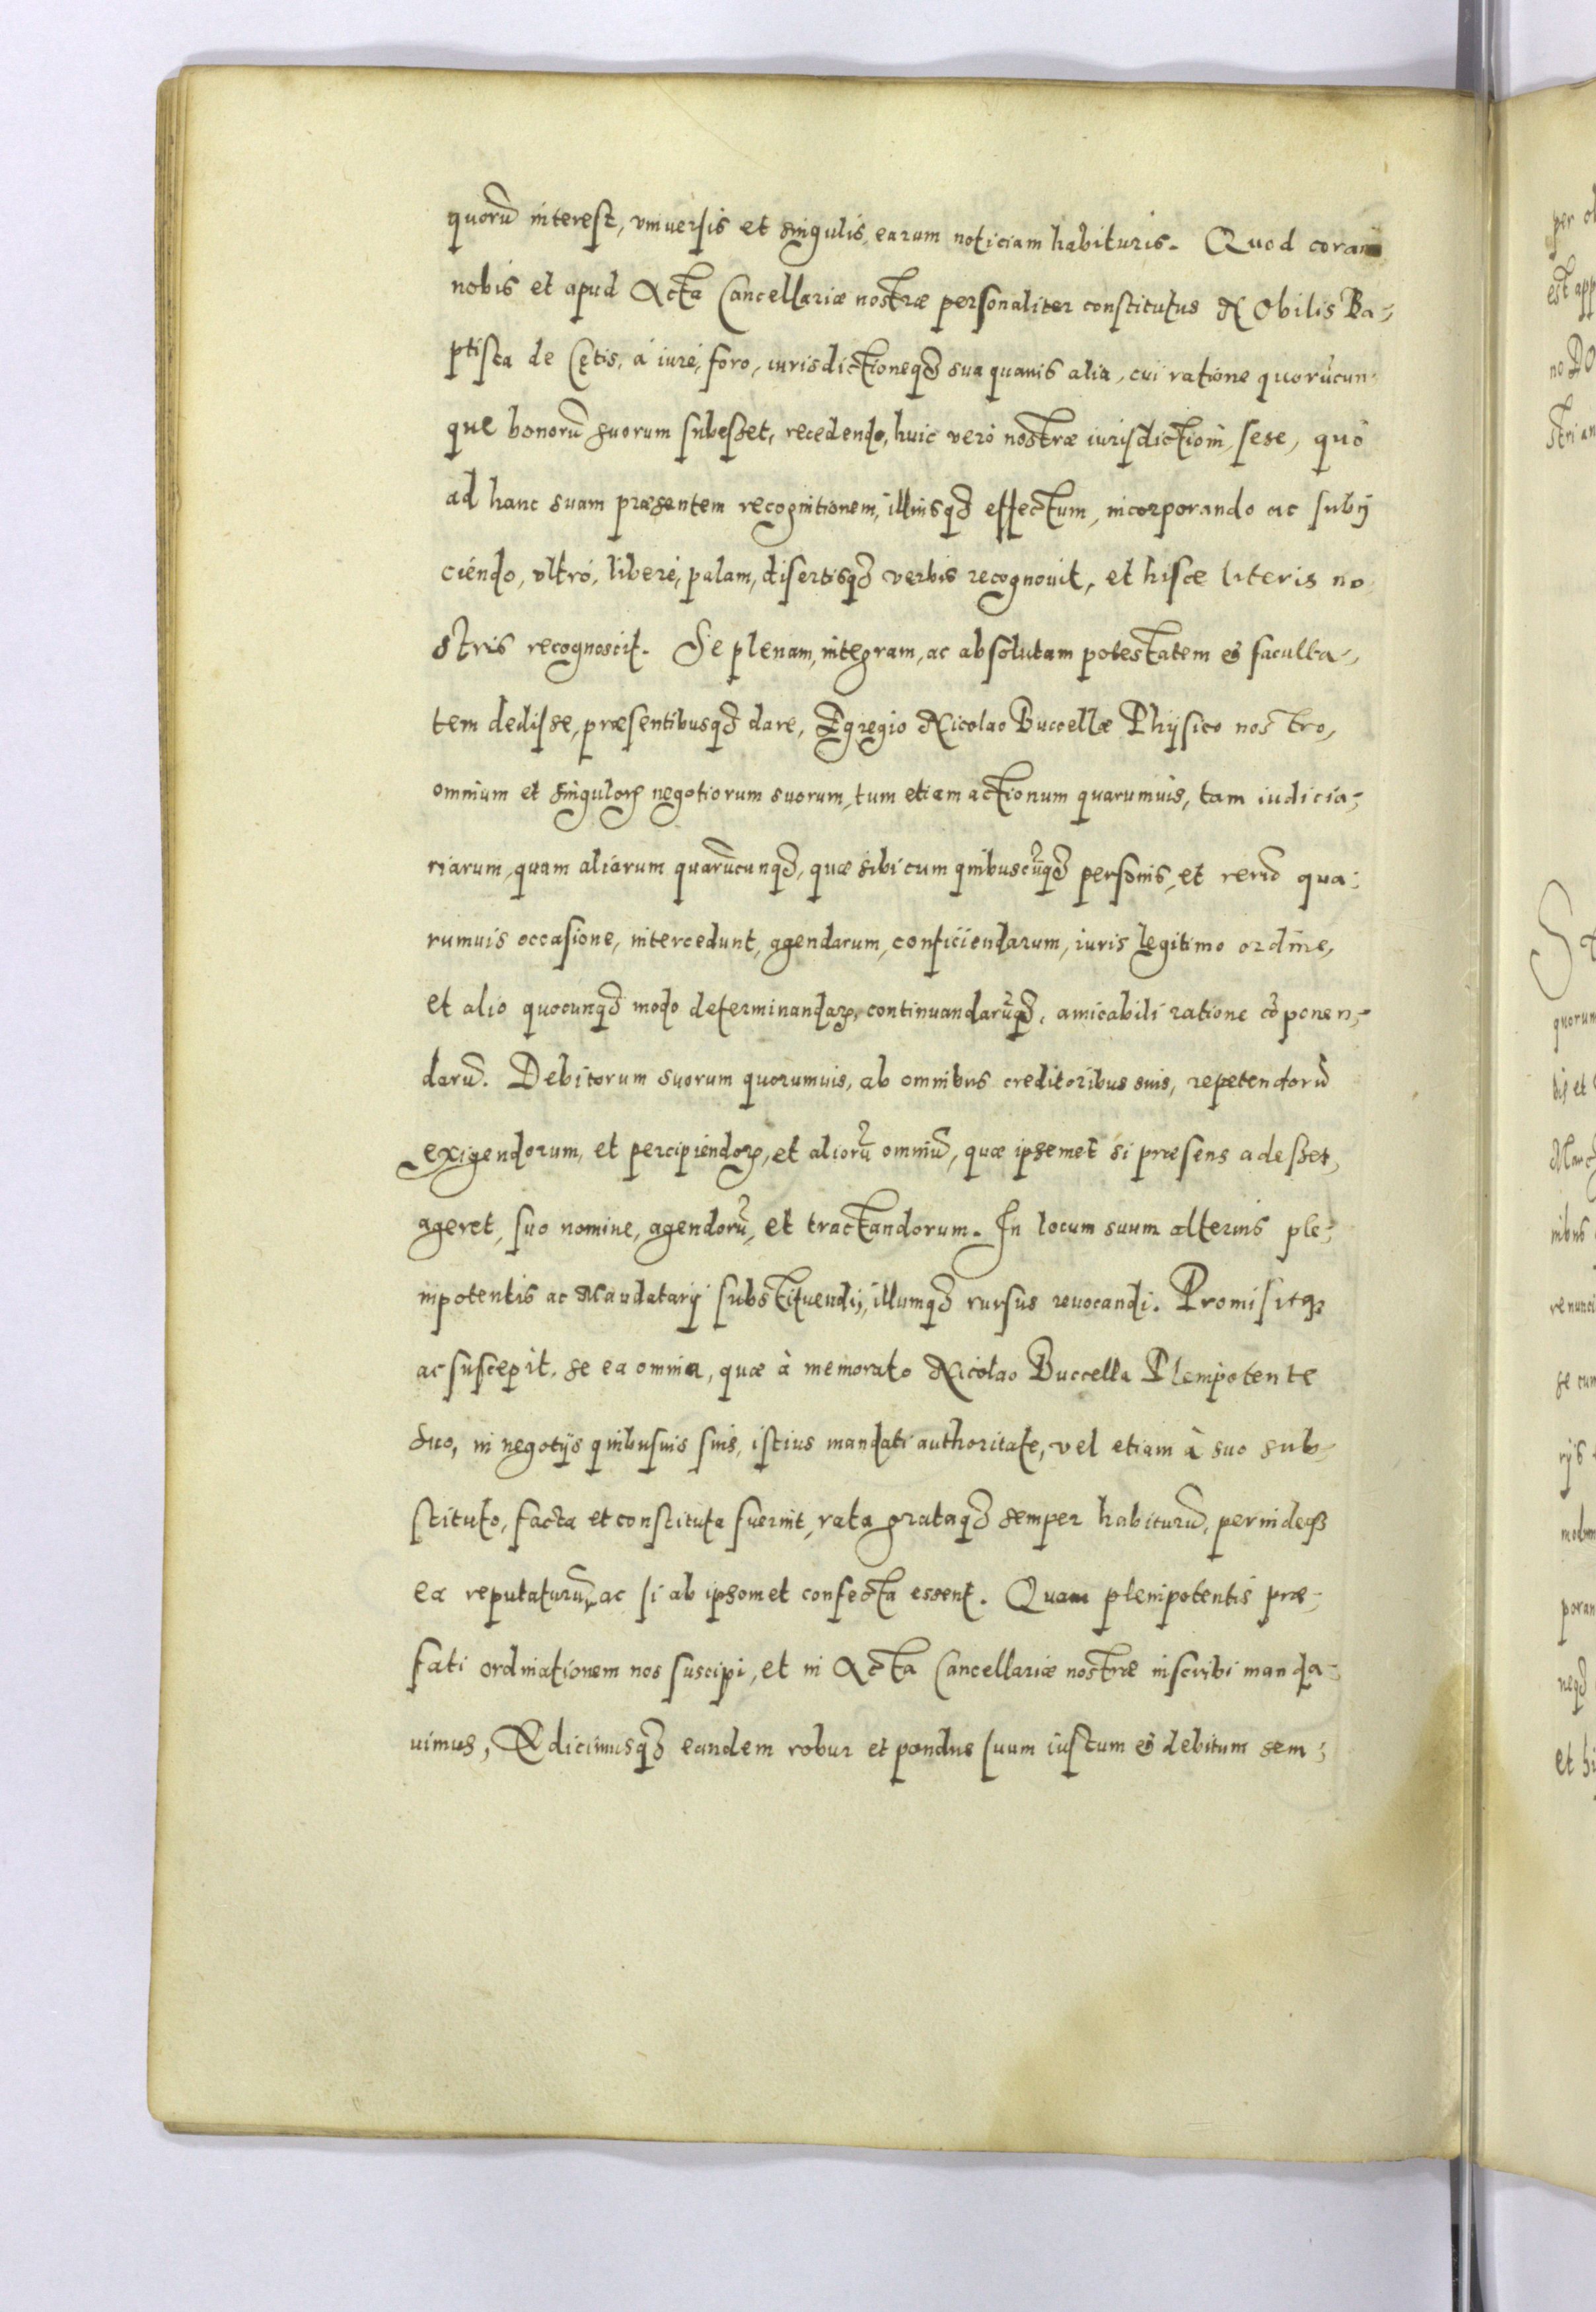 quorũ interest, vniuersis et singulis, earum noticiam habituris. Quod coram
nobis et apud Acta Cancellariæ nostræ personaliter constitutus Nobilis Ba-
ptista de Cętis, à iure, foro, iurisdictioneqȝ sua quauis alia, cui ratione quorũcun-
que bonorũ suorum subesset, recedendo, huic verò nostræ iurisdictioni, sese, quò
ad hanc suam præsentem recognitionem, illiusqȝ effectum, incorporando ac subij
ciendo, vltrò, liberè, palam, disertisqȝ verbis recognouit, et hisce literis no
stris recognoscit. Se plenam, integram, ac absolutam potestatem & faculta-
tem dedisse, præsentibusqȝ dare, Egregio Nicolao Buccellæ Physico nostro,
omnium et singuloꝝ negotiorum suorum, tum etiam actionum quarumuis, tam iudicia-
riarum, quam aliarum quarũcunqȝ, quæ sibi cum quibuscũqȝ personis, et rerũ qua-
rumuis occasione, intercedunt, agendarum, conficiendarum, iuris legitimo ordine,
et alio quocunqȝ modo determinandaꝝ, continuandarũqȝ, amicabili ratione cõponen-
darũ. Debitorum suorum quorumuis, ab omnibus creditoribus suis, repetendorũ
exigendorum, et percipiendoꝝ, et aliorũ omniũ, quæ ipsemet si præsens adesset,
ageret, suo nomine, agendorũ, et tractandorum. In locum suum alterius ple-
nipotentis ac Mandatarij substituendi, illumqȝ rursus reuocandi. Promisitqȝ
ac suscepit, se ea omnia, quæ à memorato Nicolao Buccella Plenipotente
suo, in negotijs quibusuis suis, istius mandati authoritate, vel etiam à suo sub-
stituto, facta et constituta fuerint, rata grataqȝ semper habiturũ, perindeqȝ
ea reputaturũ, ac si ab ipsomet confecta essent. Quam plenipotentis præ-
fati ordinationem nos suscipi, et in Acta Cancellariæ nostræ inscribi manda-
uimus, Edicimusqȝ eandem robur et pondus suum iustum & debitum sem-